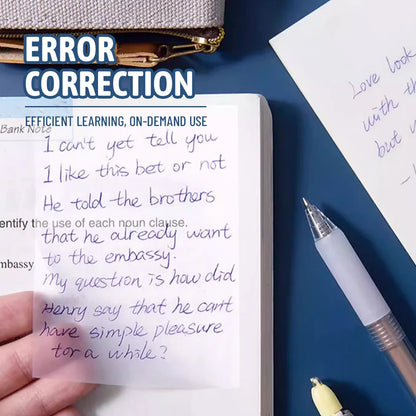 ERROR
CORRECTION
EFFICIENT LEARNING, ON-DEMAND USE
Bank Note
I can't yet tell you
I like this bet or not
He told the brothers
entify the use of each noun clause.
that he already want
to the embassy.
mbassy
My question is how did
Henry say that he can't
have simple pleasure
for a while?
Love look
with th
but